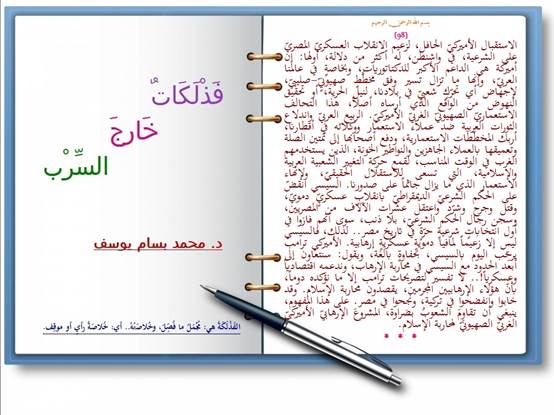 بسم الله الرحمن الرحيم
(98)
الاستقبال الأميركيّ الحافل، لزعيم الانقلاب العسكريّ المصريّ
على الشرعية، في واشنطن، له أكثر من دلالة، أولها: إنّ
أمركة هي الداعم الأكبر للدكتاتوريات، وبخاصةٍ في عالمنا
العربيّ، وإنها ما تزال تسير وفق مخططٍ صهيونيٍّ-صليبيّ،
لإجهاض أي تحركٍ شعبيٍّ في بلادنا، لنيل الحرية، أو تحقيق
النهوض من الواقع الذي أرساه أصلاً، هذا التحالف
الاستعماريّ الصهيونيّ الغربيّ الأميركيّ. الربيع العربيّ واندلاع
الثورات العربية ضد عملاء الاستعمار ووكلائه في أقطارنا،
أربك المخططات الاستعمارية، ودفع أصحابها إلى تمتين الصلة
وتعميقها بالعملاء الجاهزين والنواطير الخونة، الذين يستخدمهم
الغرب في الوقت المناسب، لقمع حركة التغيير الشعبية العربية
والإسلامية، التي تسعى للاستقلال الحقيقيّ، ولإنهاء
الاستعمار الذي ما يزال جاثماً على صدورنا. السيسي انقضّ
على الحكم الشرعيّ الديمقراطيّ بانقلابٍ عسكريٍّ دمويّ،
وقتل وجرح وشرّد واعتقل عشرات الآلاف من المصريين،
وسجن رجال الحكم الشرعيّ، بلا ذنب، سوى أنهم فازوا في
أول انتخاباتٍ شرعيةٍ حرّةٍ في تاريخ مصر.. لذلك، فالسيسي
ليس إلا زعيماً لمافيا دمويةٍ عسكريةٍ إرهابية. الأميركي ترامب
يرحّب اليوم بالسيسي، بحفاوةٍ بالغة، ويقول: سنتعاون إلى
أبعد الحدود مع السيسي في محاربة الإرهاب، وندعمه اقتصادياً
وعسكرياً!.. لا تفسير لتصريحات ترامب إلا ما نؤكده دوماً،
بأنّ هؤلاء الإرهابيين المجرمين، يقصدون محاربة الإسلام. وقد
خابوا وانفضحوا في تركية، ونجحوا في مصر. على هذا المفهوم،
ينبغي أن تقاوم الشعوب بضراوة، المشروع الإرهابيّ الأميركيّ
الغربيّ الصهيونيّ لمحاربة الإسلام.
* * *
فَذْلَكَاتٌ
خَارجَ
السِّرْب
د. محمد بسام يوسف
الفَذْلَكَةُ هي: مُجْمَلُ ما فُصِّلَ، وخُلاصَتُهُ.. أي: خُلاصَةُ رأيٍ أو موقِف.